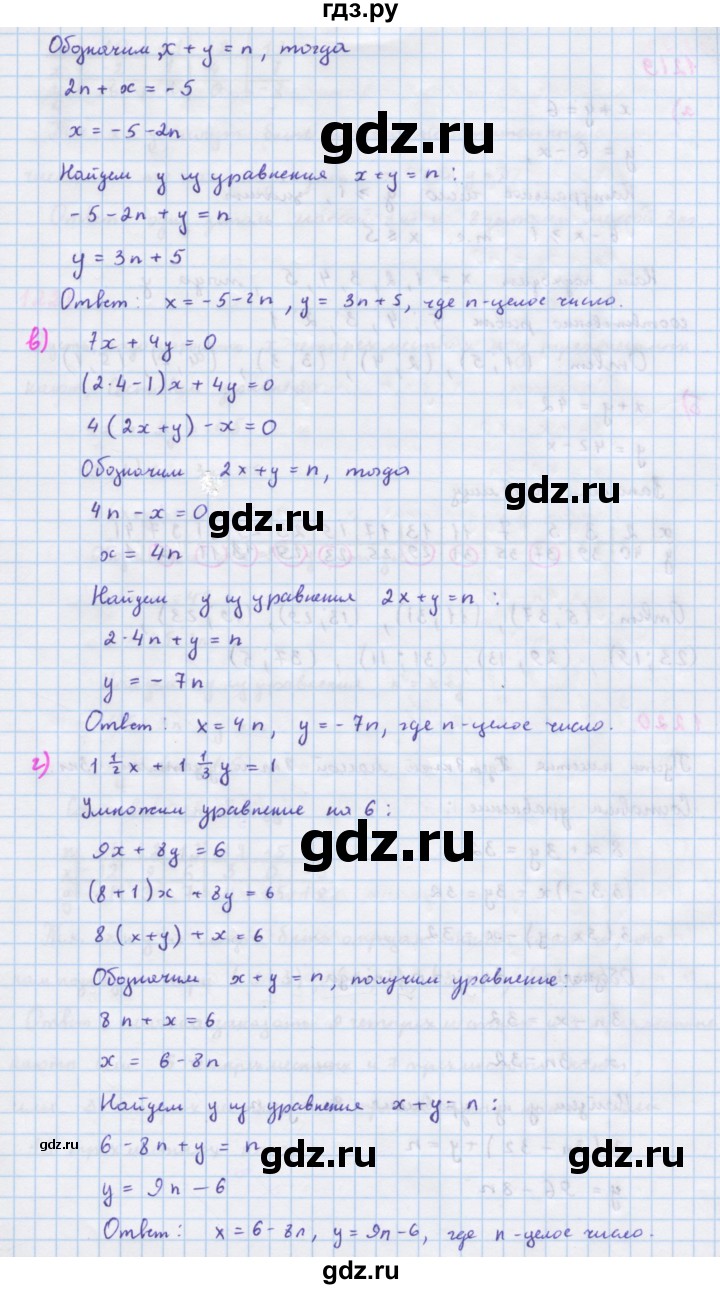 гдз.ру
Обозначим x + y = n, тогда
2n + x = - 5
x = -5 -2n
gdz.ru
Найдем y из уравнения x + y = n :
- 5 - 2n + y = n
y = 3n + 5
Ответ: x = - 5 - 2n , y = 3n + 5, где n - целое число.
в) 7x + 4y = 0
(2·4 - 1)x + 4y = 0
4(2x + y) - x = 0
Обозначим 2x + y = n, тогда
gdz.ru
4n - x = 0
gdz.ru
x = 4n
Найдем y из уравнения 2x + y = n :
2·4n + y = n
y = - 7n
Ответ: x = 4n, y = - 7n, где n - целое число.
г) 1 1/2 x + 1 1/3 y = 1
Умножим уравнение на 6 :
9x + 8y = 6
gdz.ru
(8 + 1)x + 8y = 6
8(x + y) + x = 6
Обозначим x + y = n, получим уравнение:
8n + x = 6
x = 6 - 8n
Найдем y из уравнения x + y = n :
gdz.ru
6 - 8n + y = n
gdz.ru
gdz.ru
y = 9n - 6
Ответ: x = 6 - 8n, y = 9n - 6, где n - целое число.
gdz.ru